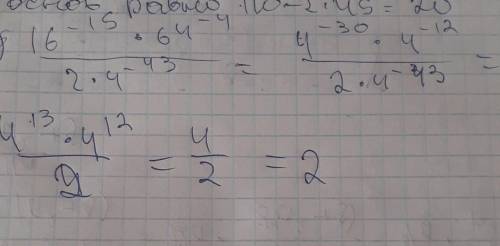 основ равно 110-2·45=20
16^-15 · 64^-4 / 2·4^-43 = 4^-30 · 4^-12 / 2·4^-43 =
4^13 · 4^12 / 2 = 4/2 = 2